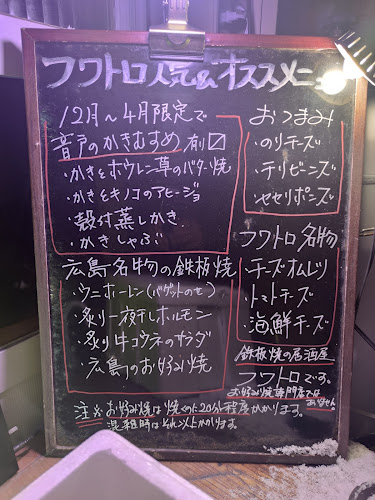 フワトロ人気&オススメニュー
12月〜4月限定で
音戸のかきむすめ有り〼
・かきとホウレン草のバター焼
・かきとキノコのアヒージョ
・殻付蒸しかき
・かきしゃぶ
広島名物の鉄板焼
・ウニホーレン(バゲットのせ)
・炙り一夜干しホルモン
・炙り牛コウネのサラダ
・広島のお好み焼
おつまみ
・のりチーズ
・チリビーンズ
・セセリポンズ
フワトロ名物
・チーズオムレツ
・トマトチーズ
・海鮮チーズ
鉄板焼の居酒屋
フワトロです。
お好み焼専門店では
ありません!
注☆お好み焼は焼くのに20分程度かかります。
混雑時はそれ以上かかります。